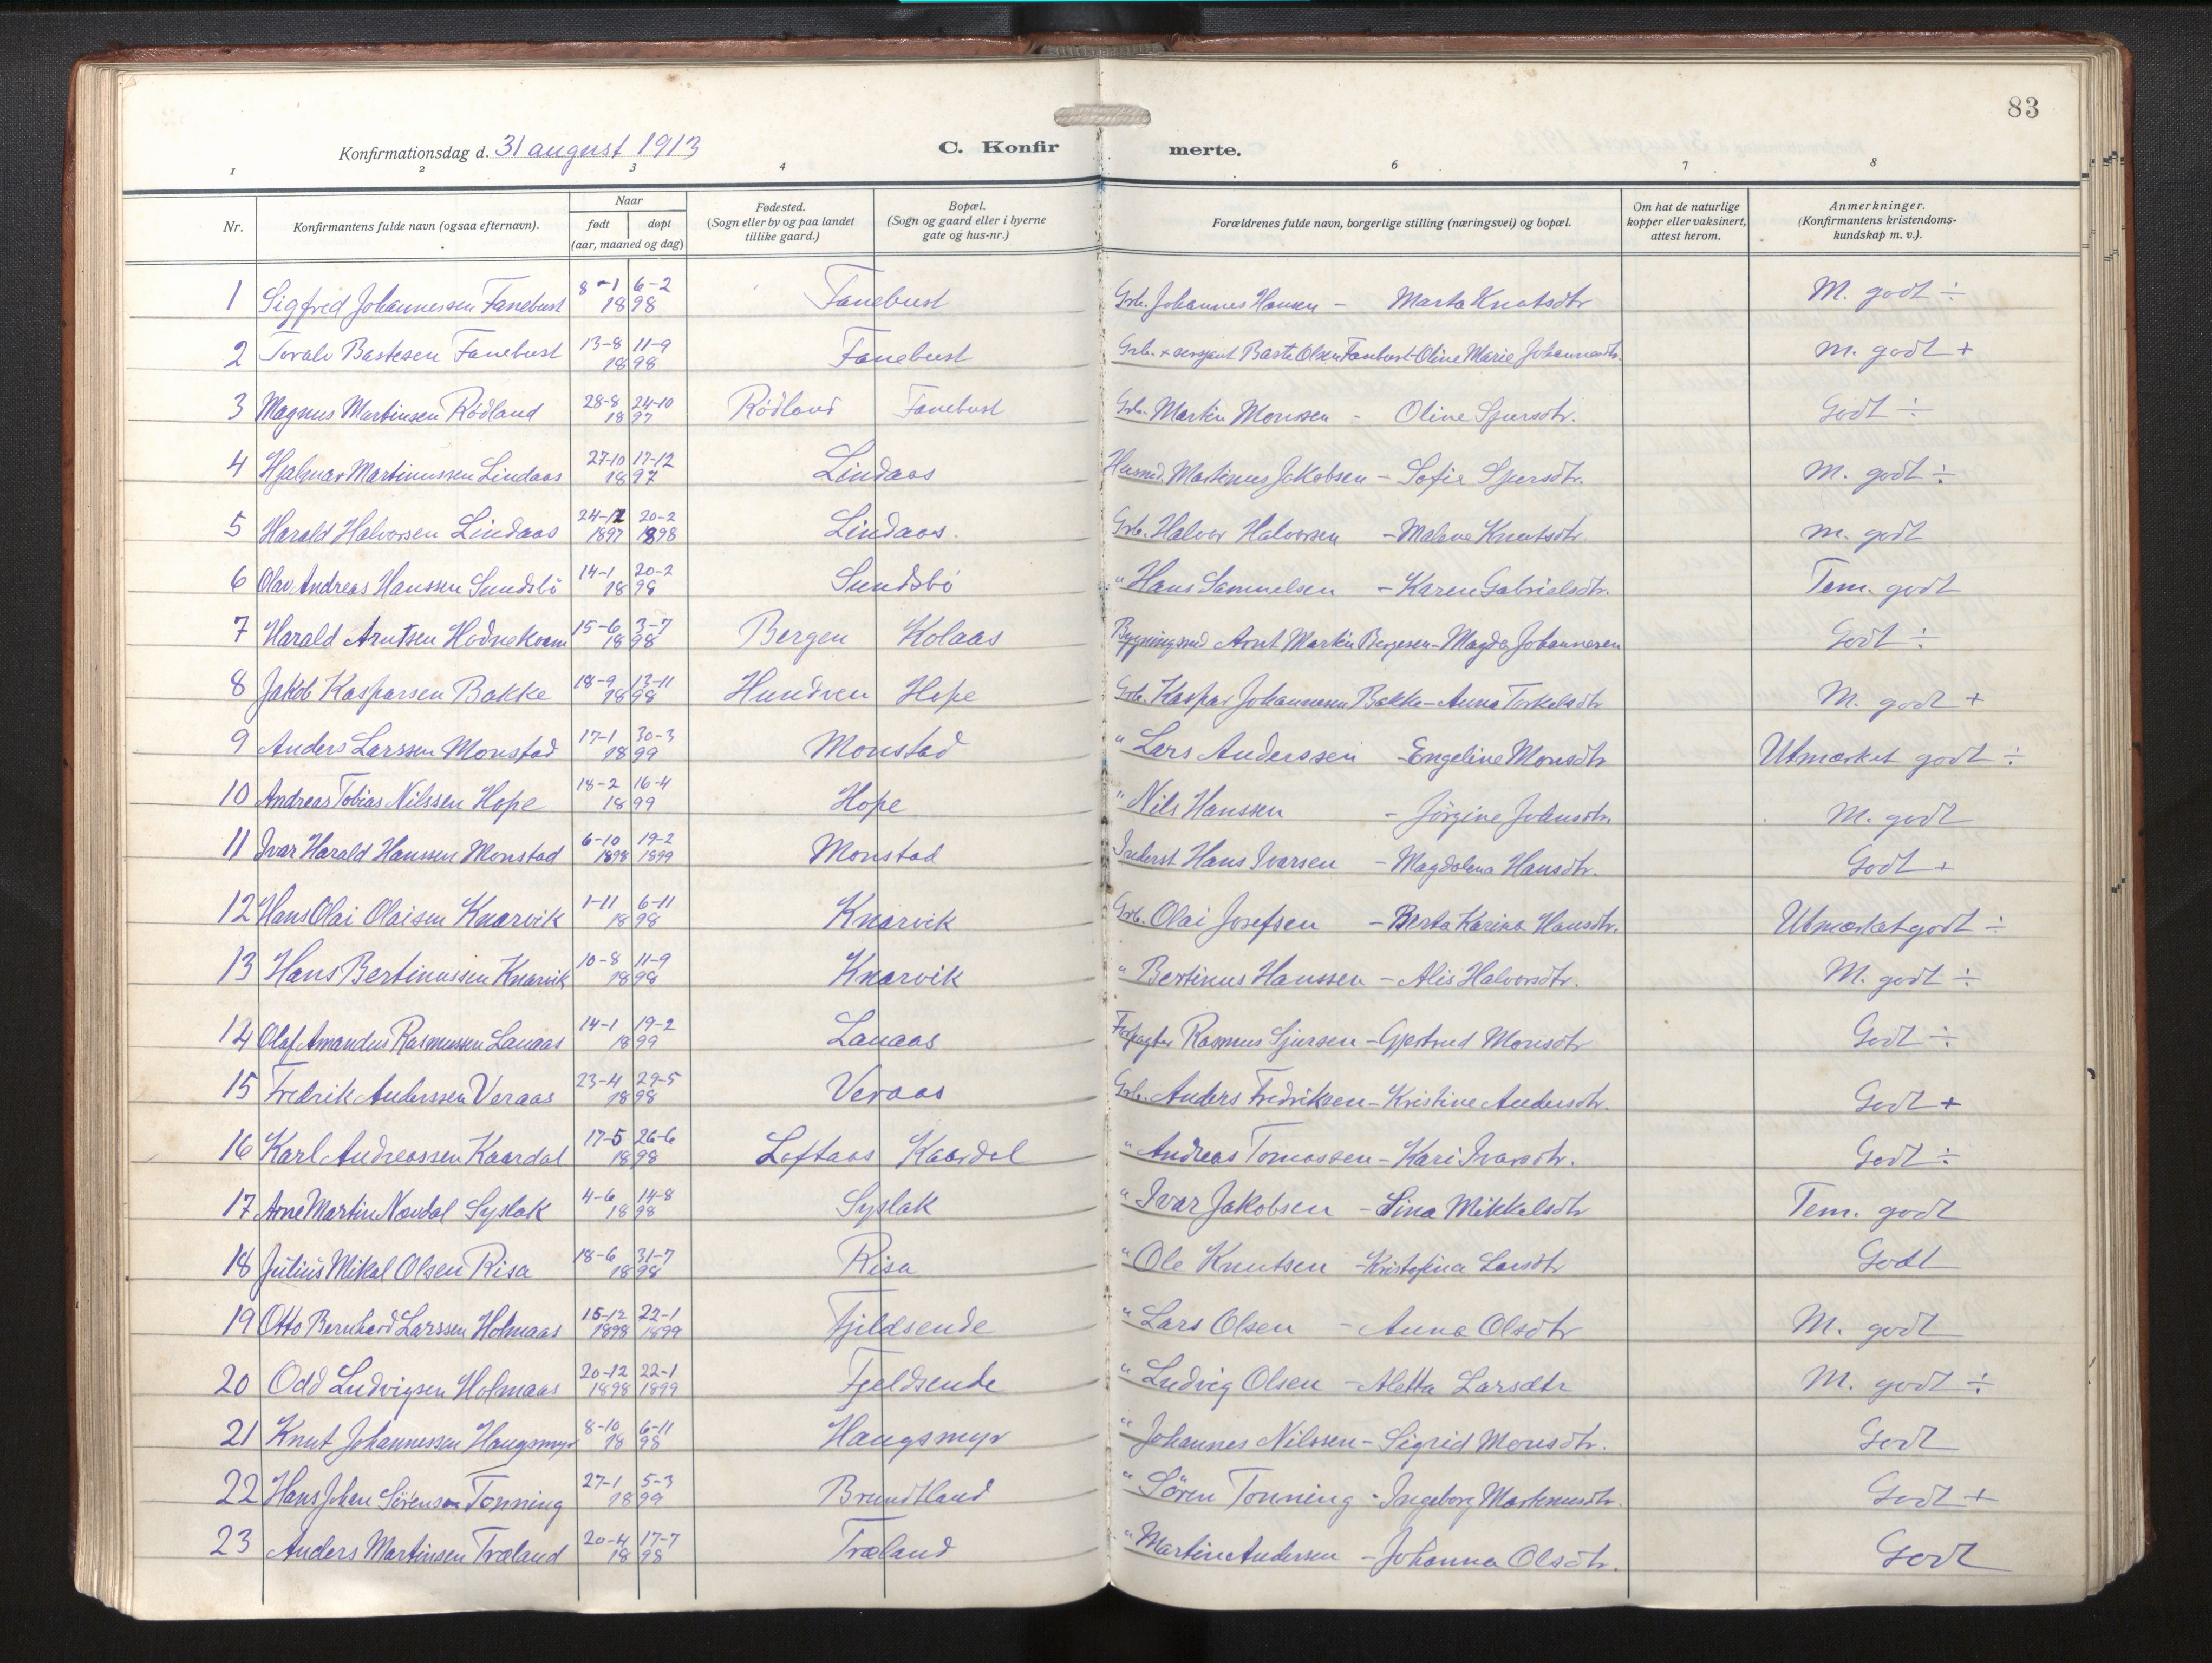 83
Konfirmationsdag d. 31 august 1913 C. Konfir merte.
1 2 3 4 6 7 8
Nr. Konfirmantens fulde navn (ogsaa efternavn). Naar født døpt (aar, maaned og dag) Fødested. (Sogn eller by og paa landet tillike gaard.) Bopæl. (Sogn og gaard eller i byerne gate og hus-nr.) Forældrenes fulde navn, borgerlige stilling (næringsvei) og bopæl. Om hat de naturlige kopper eller vaksinert, attest herom. Anmerkninger. (Konfirmantens kristendoms-kundskap m. v.).
1 Sigfred Johannessen Fanebust 8-1 6-2 1898 Fanebust Grb. Johannes Hansen - Marta Knutsdtr M. godt ÷
2 Toralv Bastesen Fanebust 13-8 11-9 1898 Fanebust Grb. + sersjant Baste Olsen Fanebust - Oline Marie Johannesdtr. M. godt +
3 Magnus Martinsen Rödland 28-8 24-10 1897 Rödland Fanebust Grb. Martin Monssen - Oline Sjursdtr. Godt ÷
4 Hjalmar Martinussen Lindaas 27-10 17-12 1897 Lindaas Husmd. Martinus Jakobsen - Sofie Sjursdtr. M. godt ÷
5 Harald Halvorsen Lindaas 24-12 1897 20-2 1898 Lindaas. Grb. Halvor Halvorsen - Malene Knutsdtr. M. godt
6 Olav Andreas Hanssen Sundsbö 14-1 20-2 1898 Sundsbö " Hans Samuelsen - Karen Gabrielsdtr. Tem. godt
7 Harald Arntsen Hodnekvam 15-6 3-7 1898 Bergen Kolaas Bygningsmd Arnt Martin Bergesen - Magda Johannesen Godt ÷
8 Jakob Kasparsen Bakke 18-9 13-11 1898 Hundven Hope Grb. Kaspar Johannesen Bakke - Anna Torkelsdtr M. godt +
9 Anders Larssen Monstad 17-1 30-3 1899 Monstad " Lars Anderssen - Engeline Monsdtr Utmærket godt ÷
10 Andreas Tobias Nilssen Hope 18-2 16-4 1899 Hope " Nils Hanssen - Jörgine Johnsdtr. M. godt
11 Ivar Harald Hanssen Monstad 6-10 1898 19-2 1899 Monstad Inderst Hans Ivarsen - Magdalena Hansdtr. Godt +
12 Hans Olai Olaisen Knarvik 1-11 6-11 1898 Knarvik Grb. Olai Josefsen - Berta Karina Hansdtr. Utmærket godt ÷
13 Hans Bertinussen Knarvik 10-8 11-9 1898 Knarvik " Bertinus Hanssen - Alis Halvorsdtr. M. godt ÷
14 Olaf Amandus Rasmussen Lauaas 14-1 19-2 1899 Lauaas Forpagter Rasmus Sjursen - Gjertrud Monsdtr Godt ÷
15 Fredrik Anderssen Veraas 23-4 29-5 1898 Veraas Grb. Anders Fredriksen - Kristine Andersdtr. Godt +
16 Karl Andreassen Kaardal 17-5 26-6 1898 Loftaas Kaardal " Andreas Tomassen - Kari Ivarsdtr. Godt ÷
17 Arne Martin Nordal Syslak 4-6 14-8 1898 Syslak " Ivar Jakobsen - Sina Mikkelsdtr Tem. godt
18 Julius Mikal Olsen Risa 18-6 31-7 1898 Risa " Ole Knutsen - Larsdtr Godt
19 Otto Bernhard Larssen Holmaas 15-12 1898 22-1 1899 Fjeldsende " Lars Olsen - Anna Olsdtr M. godt
20 Odd Ludvigsen Holmaas 20-12 1898 22-1 1899 Fjeldsende " Ludvig Olsen - Aletta Larsdtr M. godt ÷
21 Knut Johannessen Haugsmyr 8-10 6-11 1898 Haugsmyr " Johannes Nilssen - Sigrid Monsdtr. Godt
22 Hans Johan Sörensen Tonning 27-1 5-3 1899 Brundtland " Sören Tonning - Ingeborg Martinusdtr. Godt +
23 Anders Martinsen Træland 20-4 17-7 1898 Træland " Martin Andersen - Johanna Olsdtr. Godt